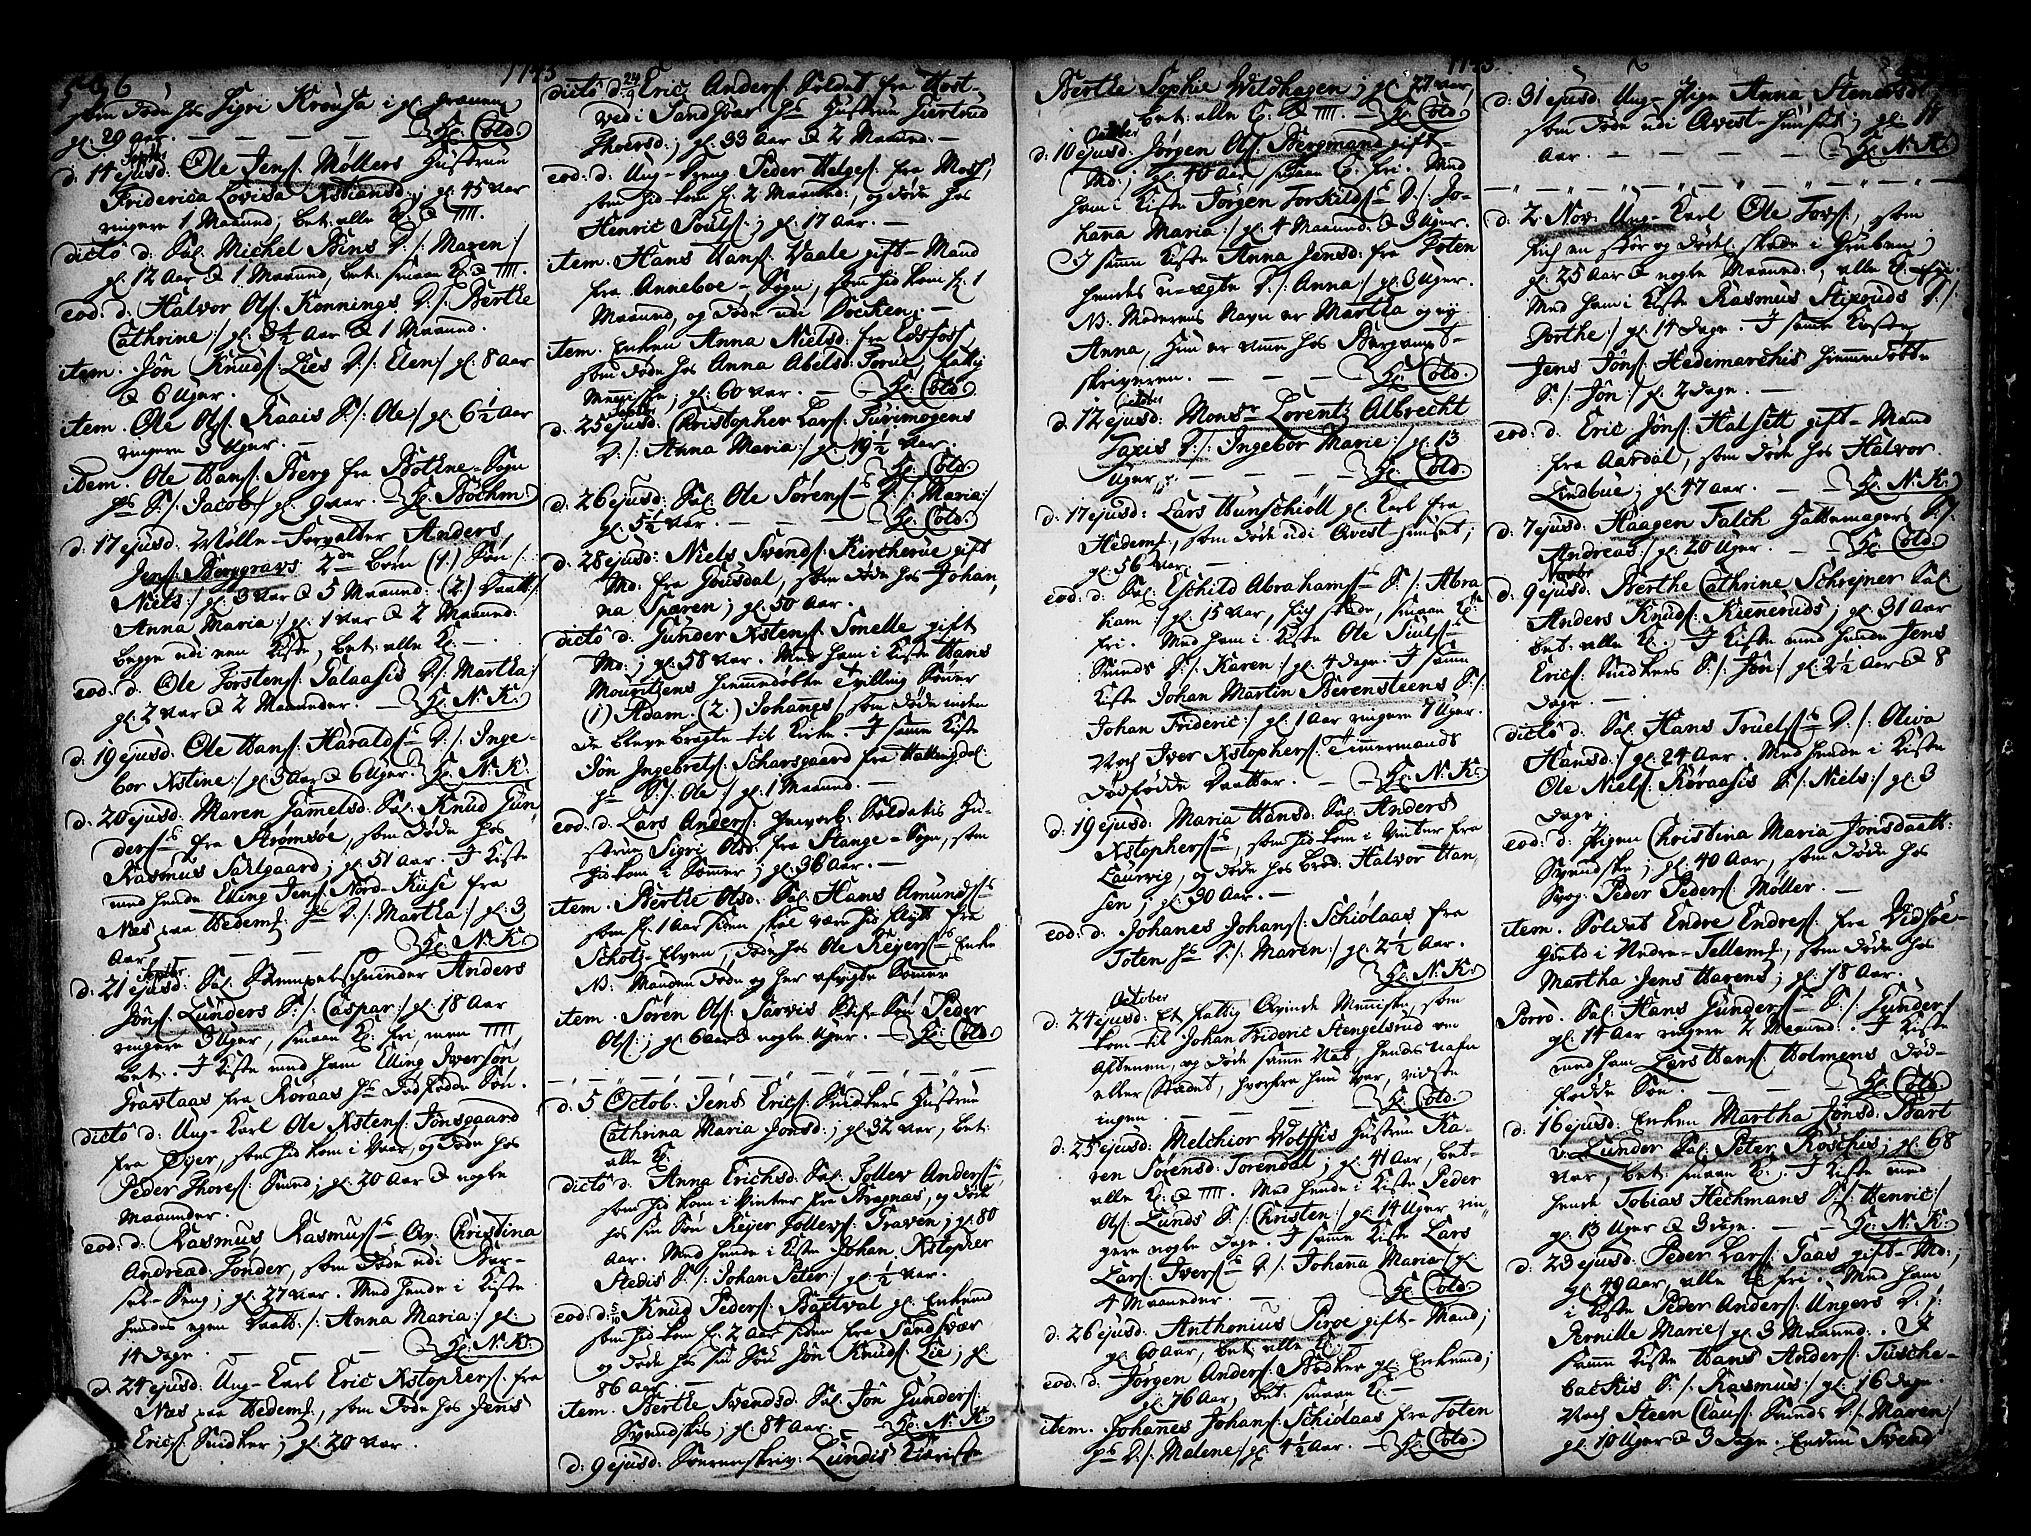 1743
som døde hos Sigri Krousa i
gl: 20 Aar. — Hr: Cold.
d: 14 ejusd: Ole Jens: Møllers Hustrue
Friderica Lovisa Xstiansd:; gl: 45 Aar
ringere 1 Maaned; bet: alle
dicto d: Sal: Michel Bins D: /: Maren:/
gl: 12 Aar & 1 Maaned, bet: smaae
eod: d: Halvor Ols: Konnings D: /: Berthe
Cathrine:/ gl: Aar & 1 Maaned.
item. Jon Knuds: Lies D: /: Elen:/ gl: 8 Aar
& 6 Uger.
item. Ole Ols: Raais S: /: Ole:/ gl: 6½ Aar
ringere 3 Uger. —
item. Ole Hans: Berg fra Bothne-Sogn
hs S: /: Jacob:/ gl: 9 Aar. Hr: Bøchm:
d: 17 ejusd: Mølle-Forvalter Anders
Jens: Berggravs 2de Børn (1) Søn /:
Niels:/ gl: 3 Aar & 5 Maaned: (2.) Daatt:
Anna Maria:/ gl: 1 Aar & 2 Maaned:
begge udi een Kiste, bet: alle
eod: d: Ole Torstens: Palaasis D: /: Martha:/
gl: 2 Aar & 2 Maaneder. — Hr: N: K:
d: 19 ejusd: Ole Hans: Haralds: D: /: Inge-
bor Xstine:/ gl: 3 Aar & 6 Uger. Hr: N: K:
d: 20 ejusd: Maren Gammelsd: Sal: Knud Gun-
ders: fra Strømsøe, som døde hos
Rasmus Sarlgaard; gl: 51 Aar. I Kiste
med hende Elling Jens: Nord-Kuse fra
Næs paa Hedem: hs D: /: Martha:/ gl: 3
Aar — Hr: N: K:
d: 21 ejusd: Sal: Anders
Jøns: Lunders S: /: Caspar:/ gl: 18 Aar
ringere 3 Uger, smaae fri, men
bet:. I Kiste med ham Elling Iversøn
Gravlaas fra Røraas hs Dødfødde Søn.
dicto d: Ung-Karl Ole Xstens: Jonsgaard
fra Øyer, som hid kom i Aar, og døde hos
Peder Thores: Smed; gl: 20 Aar & nogle
Maaneder.
eod: d: Rasmus Rasmus: Qv: Christina
Andreæd: Tønder, som døde udi Bar-
sel-Seng; gl: 27 Aar. Med hende i Kiste
hendes egen Daatt: /: Anna Maria:/ gl:
14 Dage — Hr: N: K:
d: 24 ejusd: Ung-Karl Eric Xstophers: fra
Næs paa Hedem:, som døde hos Jens
Erics: Snidker; gl: 20 Aar.
dicto d: 24/9 Eric Anders: Soldat fra Hort-
ved i Sandhvær hs Hustrue Giertrud
Thoersd:; gl: 33 Aar & 2 Maaned: —
eod: d: Ung-Dreng Peder Helges: fra Moss,
som hid kom f: 2 Maaned:, og døde hos
Henric Pouls:; gl: 17 Aar. —
item. Hans Hans: Vaale gift-Mand
fra Anneboe-Sogn, som hid kom f: 1
Maaned, og døde udi Docken; —
item. Enken Anna Nielsd: fra Edsfoss,
som døde hos Anna Abelsd: Torue fattig
Menniske; gl: 60 Aar. — Hr: Cold.
d: 25 ejusd: Christopher Lars: Furimogens
D: /: Anna Maria:/ gl: 19½ Aar.
Hr: Cold.
d: 26 ejusd: Sal: Ole Sørens: D: /: Maria:/
gl: 5½ Aar. — Hr: Cold.
d: 28 ejusd: Niels Svends: Kircherue gift
Md: fra Gousdal, som døde hos Johan,
na Spæren; gl: 50 Aar.
dicto d: Gunder Xstens: Smelle gift
Md:; gl: 58 Aar. Med ham i Kiste Haris
Mouritzens hiemmedøbte Tvilling Sønner
(1) Adam (2.) Johannes, som døde inden
de bleve bragte til Kirke. I samme Kiste
Jon Ingebrets: Scharsgaard fra Hallingdal:
hs S: /: Ole:/ gl: 1 Maaned. —
eod: d: Lars Anders: Soldatis Hu-
strue Sigri Olsd: fra Stange-Sogn, som
hid kom i Sommer; gl: 36 Aar. —
item. Berthe Olsd: Sal: Hans Amunds:
som f: 1 Aar siden skal være hid flytt fra
Scholz-Elven; døde hos Ole Reyers: Enke
N: Manden døde og her afvigte Sommer
item. Søren Ols: Sarvis Stif-Søn Peder
Ols:; gl: 6 Aar & nogle Uger. — Hr: Cold.
d: 5 Octob: Jens Erics: Snidkers Hustrue
Cathrina Maria Jonsd:; gl: 32 Aar, bet:
alle
dicto d: Anna Erichsd: Sal: Tollev Anders:
som hid kom i Vinter fra Bragnæs, og døde
hos sin Søn Reyer Tollevs: Graven; gl: 80
Aar. Med hende i Kiste Johan Xstopher
Stedis S: /: Johan Peter:/ gl: ½ Aar.
eod: d: 5/10 Knud Peders: Baxtval gl: Enkemd
som hid kom f: 2 Aar siden fra Sandsvær
og døde hos sin Søn Jon Knuds: Lie; gl:
86 Aar —
item. Berthe Svendsd: Sal: Jon Gunders:
Svendskis; gl: 84 Aar. — Hr: N: K:
d: 9 ejusd: Skrivr: Lundis Kiereste
1743
Berthe Sophie Wildhagen; gl: 77 Aar,
bet: alle Hr: Cold
October
d: 10 ejusd: Jørgen Ols: Bergmand gift-
Md:; gl: 40 Aar smaae fri. Med
ham i Kiste Jørgen Torkilds: D: /: Jo-
hana Maria:/ gl: 4 Maaned & 3 Uger.
I samme Kiste Anna Jensd: fra Toten
hendes u-ægte D: /: Anna:/ gl: 3 Uger.
N: Moderens Navn er Martha og ey
Anna, hun er amme hos Bergamts-
skriveren. — Hr: Cold.
October
d: 12 ejusd: Monsr Lorentz Albrecht
Taxis D: /: Ingebor Marie:/ gl: 13
Uger. — Hr: Cold.
d: 17 ejusd: Lars Hunschioll gl: Karl fra
Hedem:, som døde udi Qvest-Huuset;
gl: 56 Aar. —
eod: d: Sal: Eschild Abrahams: S: /: Abra
ham:/ gl: 15 Aar, fich skade, smaae
fri. Med ham i Kiste Ole Siuls:
Smeds D: /: Karen:/ gl: 4 Dage. I samme
Kiste Johan Martin Berensteens S: /:
Johan Frideric:/ gl: 1 Aar ringere 7 Uger.
Nock Iver Xstophers: Timmermands
dødfødde Daatter. — Hr: N: K:
d: 19 ejusd: Maria Hansd: Sal: Anders
Xstophers:, som hid kom i Vinter fra
Laurvig, og døde hos Brod: Halvor Han,
sen; gl: 30 Aar. —
eod: d: Johanes Johans: Schiølaas fra
Toten hs D: /: Maren:/ gl: 2½ Aar.
Hr: N: K:
October
d: 24 ejusd: Et fattig Qvinde Menniske, som
kom til Johan Frideric Stengelsrud om
Aftenen, og døde samme Nat, hendes Nafn
eller Stædet, hvorfra hun var, vidste
ingen. — Hr: Cold.
d: 25 ejusd: Melchior Wolffis Hustrue Ka-
ren Sørensd: Torendal; gl: 41 Aar, bet-
alle Med hende i Kiste Peder
Ols: Lunds S: /: Christen:/ gl: 14 Uger rin-
gere nogle Dage. I samme Kiste Lars
Lars: Ivers: D: /: Johana Maria:/ gl:
4 Maaneder. — Hr: Cold.
d: 26 ejusd: Anthonius Piroe gift-Mand;
gl: 60 Aar, bet: alle
eod: d: Jørgen Anders: Bødker gl: Enkemd;
gl: 76 Aar, bet: smaae
item. Johannes Johans: Schiølaas fra Toten
hs D: /: Malene:/ gl: 4½ Aar. — Hr: Cold.
d: 31 ejusd: Ung-Pige Anna Stenersd:
som døde udi Qvest-Huuset; gl: 14
Aar. — Hr: N: K:
d: 2 Nov: Ung-Karl Ole Tovs:, som
fich en stor og dødl: skade i Gruben;
gl: 25 Aar & nogle Maaned:, alle fri.
Med ham i Kiste Rasmus Stixruds D: /:
Dorthe:/ gl: 14 Dage. I samme Kiste
Jens Jons: Hedemarchis hiemmedøbte
S: /: Jon:/ gl: 2 Dage.
eod: d: Eric Jøns: Halsett gift-Mand
fra Aardal, som døde hos Halvor
Lindbue; gl: 47 Aar. — Hr: N: K:
d: 7 ejusd: Haagen Falch Hattemagers S: /:
Andreas:/ gl: 20 Uger. — Hr: Cold.
Novbr
d: 9 ejusd: Berthe Cathrine Schrejner Sal:
Anders Knuds: Kieneruds; gl: 31 Aar
bet: alle I Kiste med hende Jens
Erics: Snidkers S: /: Jon:/ gl: 2½ Aar & 8
Dage. —
dicto d: Sal: Hans Truels: D: /: Oliva
Hansd:/ gl: 24 Aar. Med hende i Kiste
Ole Niels: Røraasis S: /: Niels:/ gl: 3
Dage.
eod: d: Pigen Christina Maria Jonsdaatt:
Svendske; gl: 40 Aar, som døde hos
Svog: Peder Peders: Møller. —
item. Soldat Endre Endres: fra Vidsøe-
Gield i Nedre-Tellem:, som døde hos
Martha Jens Harens; gl: 18 Aar.
Porrò. Sal: Hans Gunders: S: /: Gunder:/
gl: 14 Aar ringere 2 Maaned:. I Kiste
med ham Lars Hans: Holmens Død-
fødde Søn — Hr: Cold
d: 16 ejusd: Enken Martha Jonsd: Bart
v: Lunder Sal: Peter Röschis; gl: 68
Aar, bet: smaae I Kiste med
hende Tobias Heckmans S: /: Henric:/
gl: 13 Uger & 3 Dage. — Hr: N: K:
d: 23 ejusd: Peder Lars: Faas gift-Md:,
gl: 49 Aar, alle fri. Med ham
i Kiste Peder Anders: Ungers D: /:
Pernille Marie:/ gl: 3 Maaned:. I
samme Kiste Hans Anders: Tusche-
backis S: /: Rasmus:/ gl: 16 Dage.
Nock Steen Claus: Smeds D: /: Maren:/
gl: 10 Uger & 3 Dage. Endnu Svend